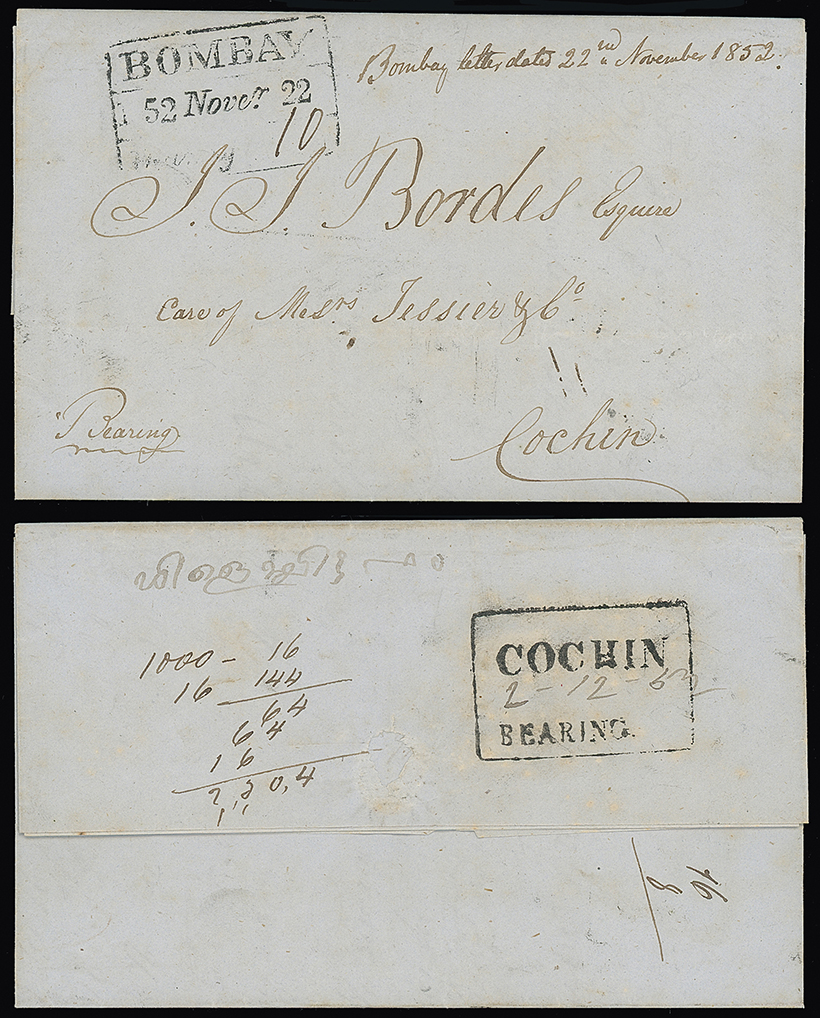 BOMBAY
52 Nover. 22
10
Bombay letter dated 22nd November 1852.
J. J. Bordes Esquire
Care of Messrs Tessier & Co
Bearing
Cochin
1000 - 16
16 144
64
64
16
2,304
COCHIN
2-12-52
BEARING.
16
8